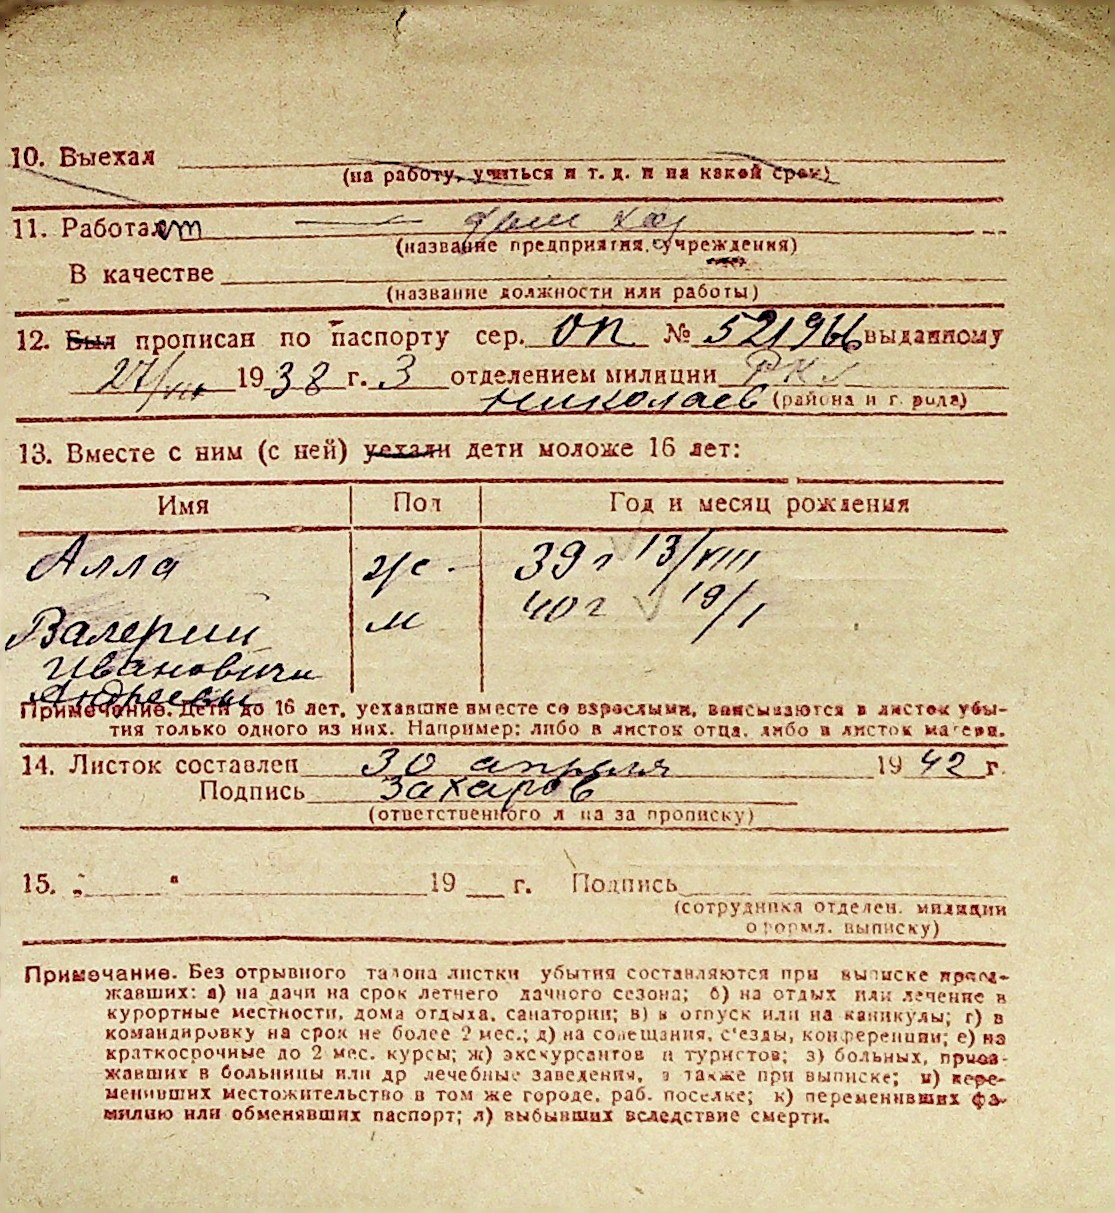 10. Выехал
(на работу, учиться и т. д. и на какой срок)
11. Работает — дом хоз
(название предприятия, учреждения)
В качестве
(название должности или работы)
12. Был прописан по паспорту сер. ОП № 521966 выданному
27/VIII 1938 г. 3 отделением милиции РКМ
Николаев (района и города)
13. Вместе с ним (с ней) уехали дети моложе 16 лет:
Имя Пол Год и месяц рождения
Алла ж. 39 г 13/VIII
Валерий м 40 г 19/I
Ивановичи
Андреевы
Примечание. Дети до 16 лет, уехавшие вместе со взрослыми, вписываются в листок убы-
тия только одного из них. Например: либо в листок отца, либо в листок матери.
14. Листок составлен 30 апреля 1942 г.
Подпись Захаров
(ответственного лица за прописку)
15. „ " 19 г. Подпись
(сотрудника отделен. милиции
оформл. выписку)
Примечание. Без отрывного талона листки убытия составляются при выписке приез-
жавших: а) на дачи на срок летнего дачного сезона; б) на отдых или лечение в
курортные местности, дома отдыха, санатории; в) в отпуск или на каникулы; г) в
командировку на срок не более 2 мес.; д) на совещания, с'езды, конференции; е) на
краткосрочные до 2 мес. курсы; ж) экскурсантов и туристов; з) больных, приез-
жавших в больницы или др лечебные заведения, а также при выписке; и) пере-
менивших местожительство в том же городе, раб. поселке; к) переменивших фа-
милию или обменявших паспорт; л) выбывших вследствие смерти.